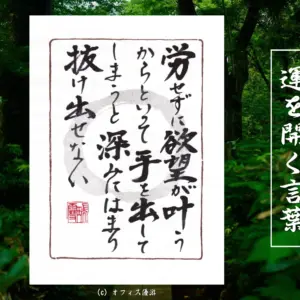 労せずに欲望が叶う
からといって手を出して
しまうと深みにはまり
抜け出せない
運を開く言葉
(c) オフィス蓮沼